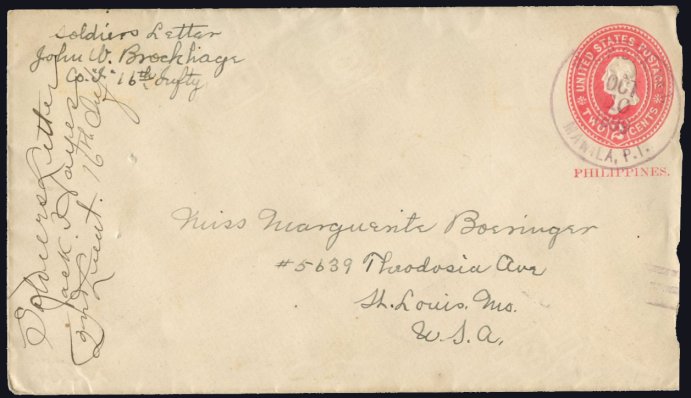 Soldiers Letter
John W. Brockhage
Co. "I" 16th Infty
Soldiers Letter
Jack. Hayes
2nd Lieut. 16th Inf
UNITED STATES POSTAGE
TWO 2 CENTS
OCT
10
MANILA, P.I.
PHILIPPINES.
Miss Marguerite Boeringer
#5639 Theodosia Ave
St. Louis. Mo.
U.S.A.